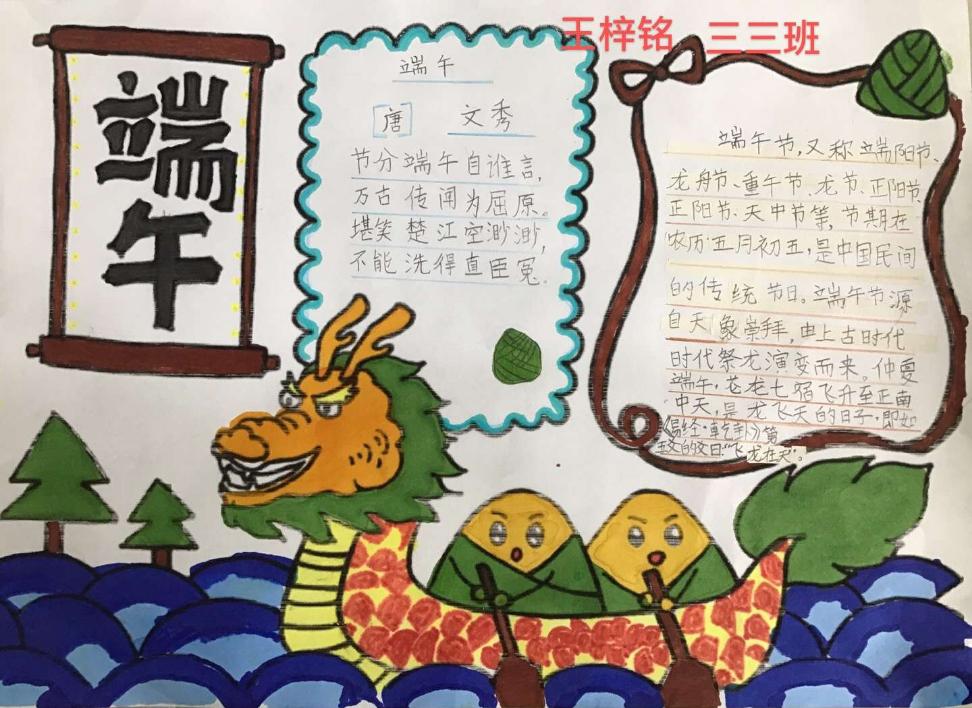 王梓铭 三三班
端午
端午
唐 文秀
节分端午自谁言，
万古传闻为屈原。
堪笑楚江空渺渺，
不能洗得直臣冤。
端午节，又称端阳节、
龙舟节、重午节、龙节、正阳节
正阳节、天中节等，节期在
农历五月初五，是中国民间
的传统节日。端午节源
自天象崇拜，由上古时代
时代祭龙演变而来。仲夏
端午，苍龙七宿飞升至正南
中天，是龙飞天的日子，即如
《易经·乾卦》第
五爻的爻曰“飞龙在天”。